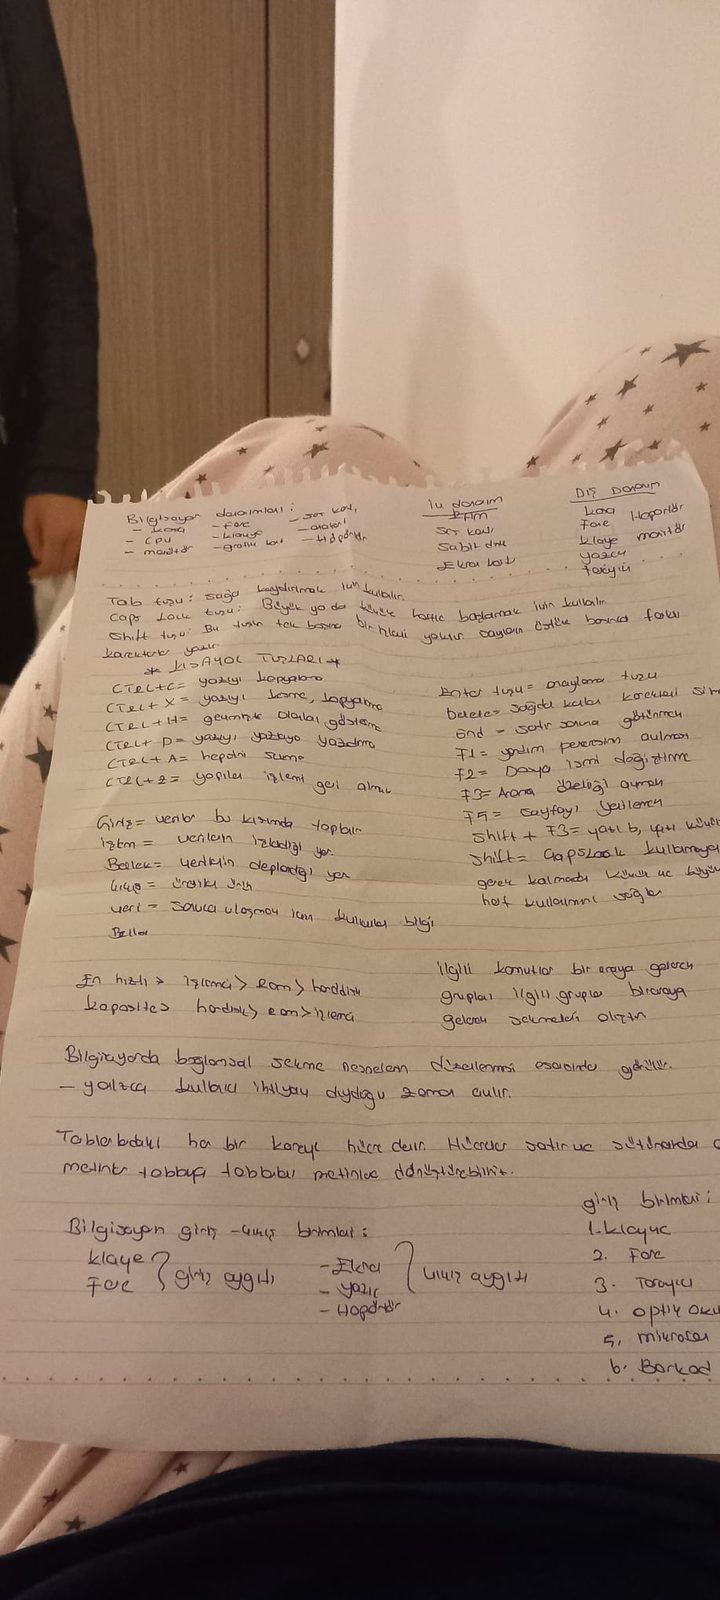 Bilgisayar donanımları:
- Kasa - Fare - Ses kartı
- CPU - klavye
- monitör - grafik kart - Hoparlör
İç donanım
RAM
Ses kartı
Sabit disk
Ekran kartı
Dış Donanım
Kasa
Fare Hoparlör
klavye monitör
yazıcı
tarayıcı
Tab tuşu: sağa kaydırmak için kullanılır.
Caps Lock tuşu: Büyük ya da küçük harfle başlamak için kullanılır
Shift tuşu: Bu tuşun tek başına bir işlevi yoktur sayıların üstüne basınca farklı
karakterler yazır
* KISAYOL TUŞLARI *
CTRL+C= yazıyı kopyalama
CTRL+ X = yazıyı kesme, kopyalama
CTRL+H= geçmişte olanları gösterme
CTRL+ P= yazıyı yazıcıya yazdırma
CTRL+ A= hepsini seçme
CTRL+Z= yapılan işlemi geri alma
Enter tuşu= onaylama tuşu
Delete= sağda kalan karekteri
End = satır sonuna götürmen
F1= yardım penceresini açılması
F2= Dosya ismi değiştirme
F3= Arama özelliği açmak
F5= sayfayı yenilemek
Shift + F3= yazı b, yazı
Shift= CapsLook kullanmaya
gerek kalmadan küçük ve büyük
harf kullanımını sağlar
Giriş= veriler bu kısımda toplanır
işlem = verilerin işlendiği yer
Bellek= verilerin depolandığı yer
Çıkış = üretilen ürün
veri = sonuca ulaşmak için kullanılan bilgi
En hızlı > işlemci > ram > harddisk
kapasite > hardisk > ram > işlemci
ilgili komutlar bir araya gelerek
grupları ilgili gruplar biraraya
gelerek sekmeleri oluştur
Bilgisayarda bağlamsal sekme nesnelerin düzenlenmesi esasında görülür.
- yalnızca kullanıcı ihtiyacı duyduğu zaman açılır.
Tablolardaki her bir kareye hücre denir. Hücreler satır ve sütunlardan
metinler tabloya tablolar metinlere dönüştürebilir.
Bilgisayar giriş - çıkış birimleri:
Klavye
Fare
giriş aygıtı
- Ekran
- Yazıcı
- Hoparlör
çıkış aygıtı
giriş birimleri:
1. klavye
2. Fare
3. Tarayıcı
4. optik oku
5. mikrofon
6. Barkod